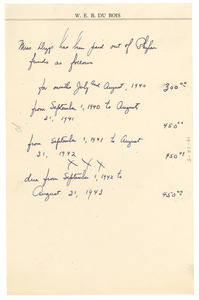 W. E. B. DU BOIS
Miss Diggs has been paid out of Phylon
funds as follows
for months July and August, 1940 300.00
from September 1, 1940 to August
31, 1941
450.00
from September 1, 1941 to August
31, 1942 450.00
X X X
due from September 1, 1942 to
August 31, 1943 450.00